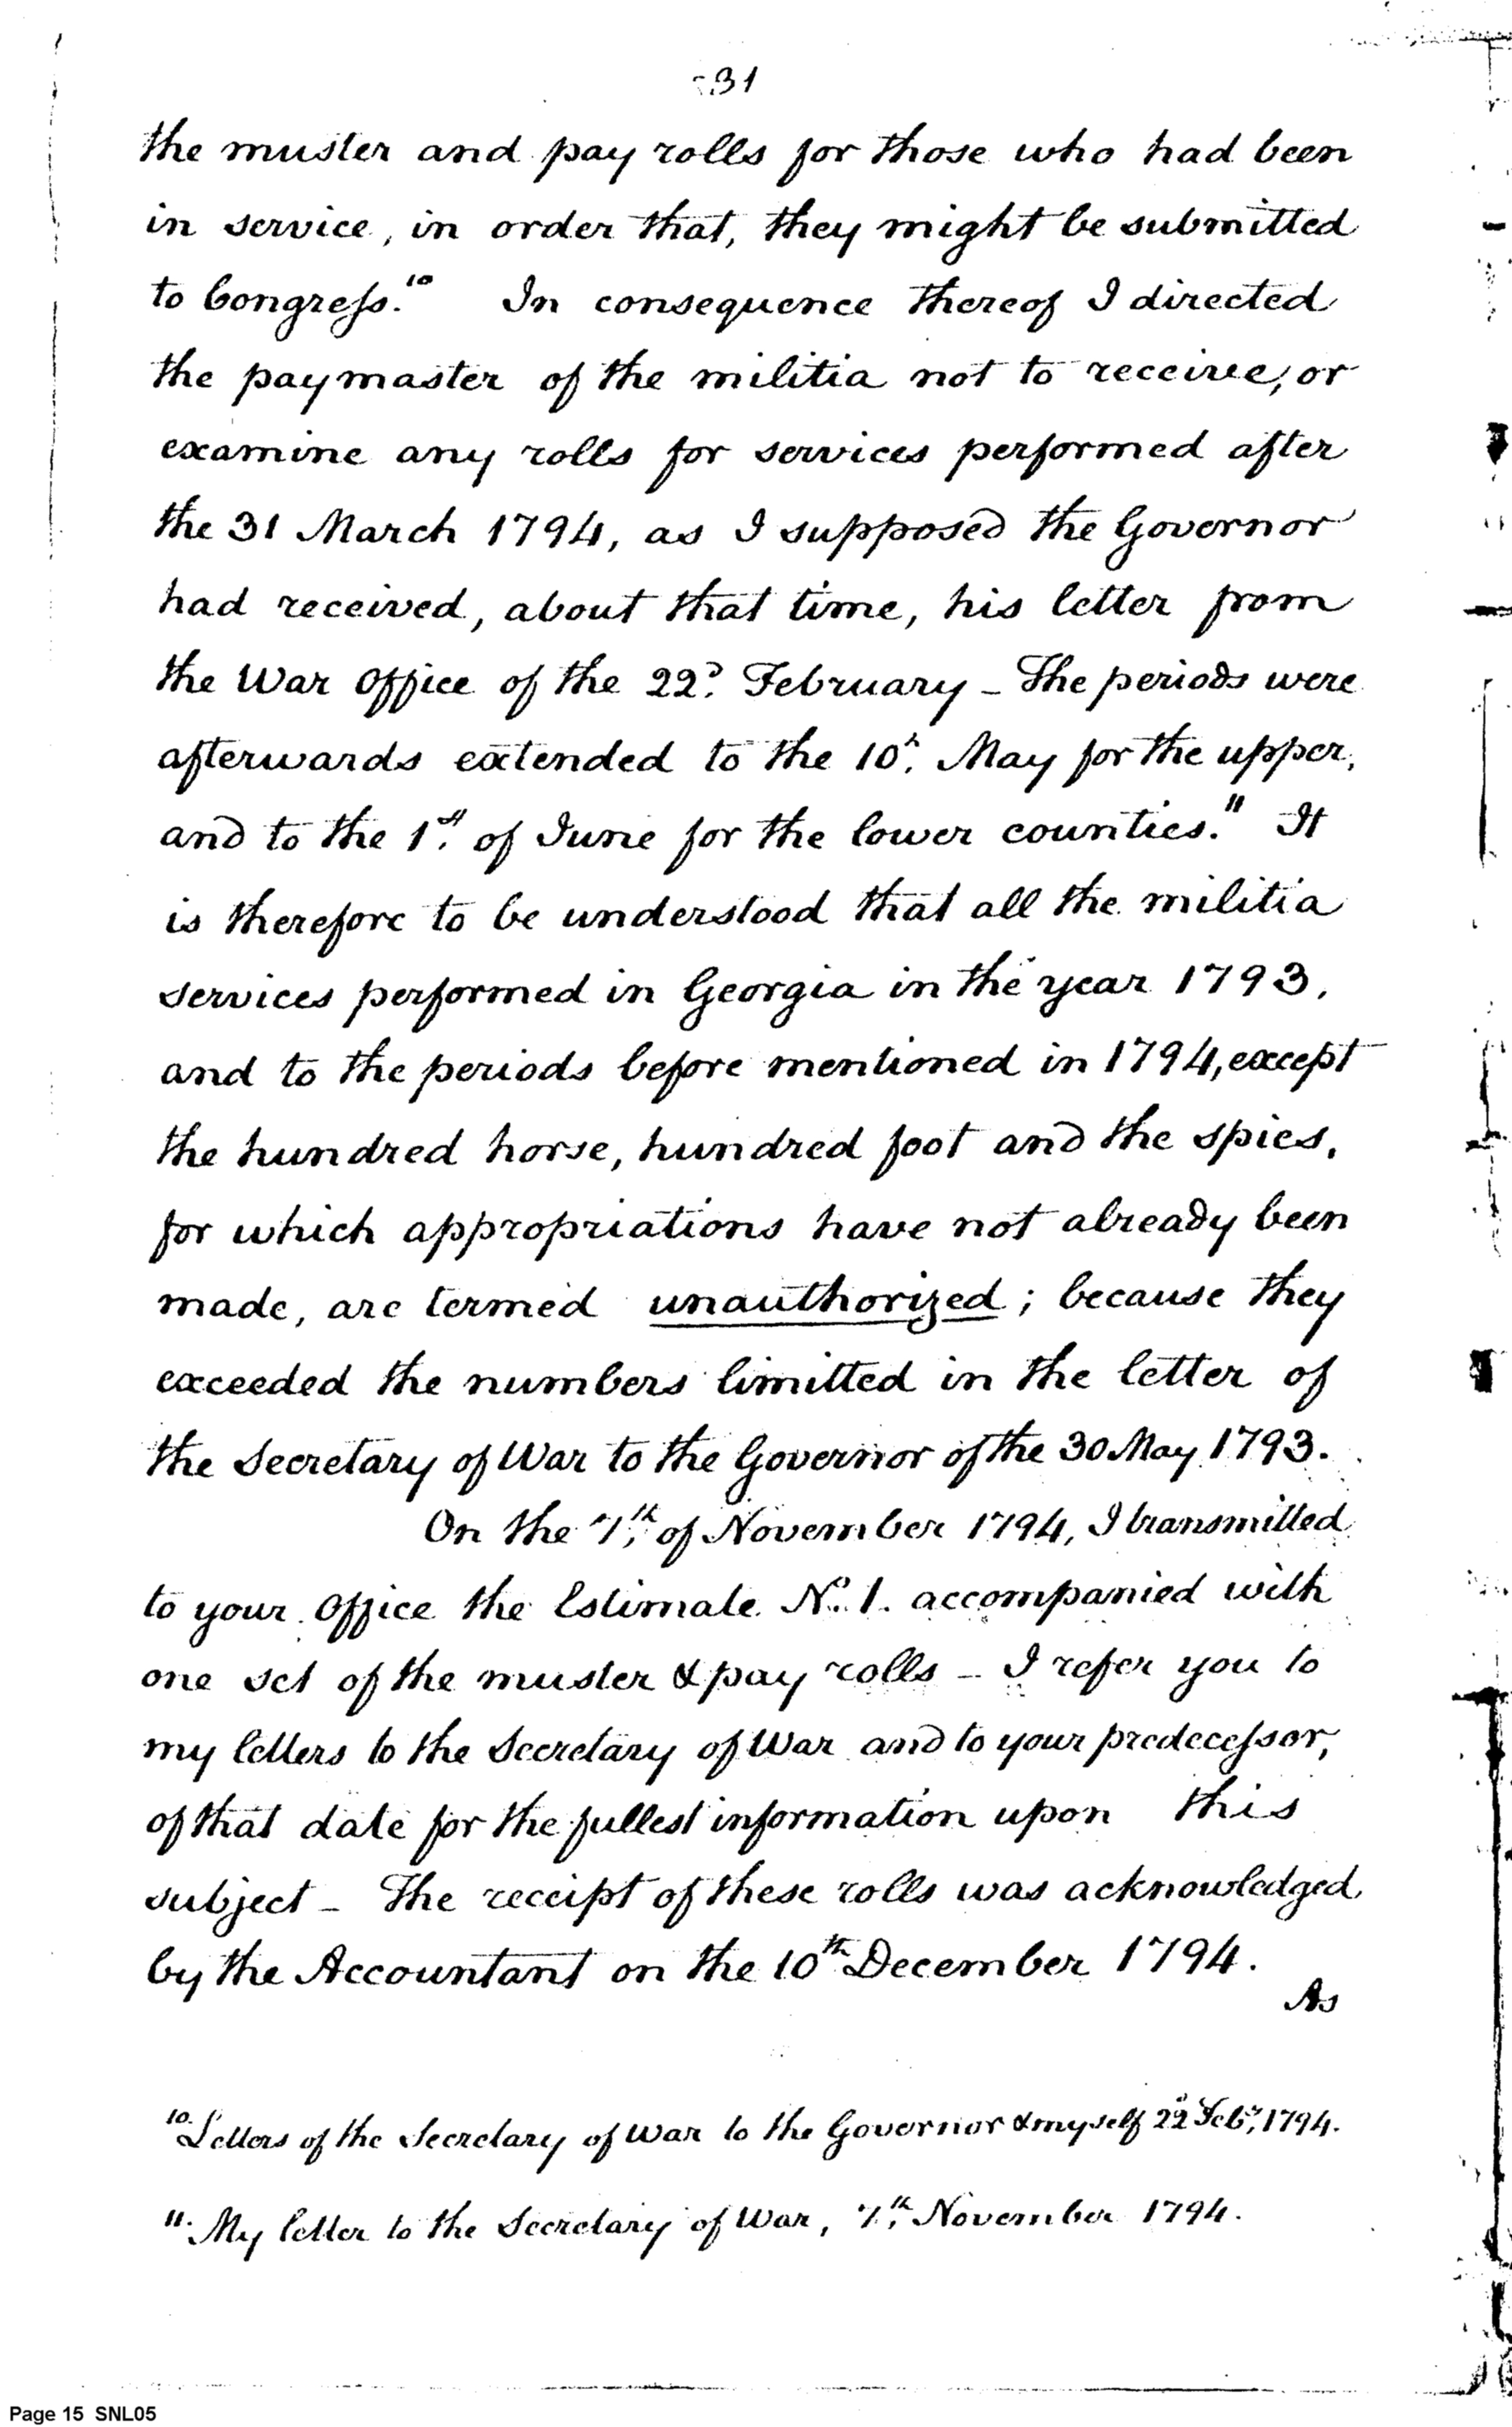 31
the muster and pay rolls for those who had been
in service, in order that, they might be submitted
to Congress.¹⁰ In consequence thereof I directed
the paymaster of the militia not to receive, or
examine any rolls for services performed after
the 31 March 1794, as I supposed the Governor
had received, about that time, his letter from
the War Office of the 22ᵈ. February – The periods were
afterwards extended to the 10ʰ. May for the upper,
and to the 1ˢᵗ. of June for the lower counties.¹¹ It
is therefore to be understood that all the militia
services performed in Georgia in the year 1793,
and to the periods before mentioned in 1794, except
the hundred horse, hundred foot and the spies,
for which appropriations have not already been
made, are termed unauthorized; because they
exceeded the numbers limitted in the letter of
the Secretary of War to the Governor of the 30 May 1793.
On the 7ᵗʰ. of November 1794, I transmitted
to your Office the Estimate Nº. 1. accompanied with
one set of the muster & pay rolls – I refer you to
my letters to the Secretary of War and to your predecessor,
of that date for the fullest information upon this
subject – The receipt of these rolls was acknowledged
by the Accountant on the 10ᵗʰ December 1794.
As
¹⁰. Letters of the Secretary of War to the Governor & myself 22ᵈ Febʸ, 1794.
¹¹. My letter to the Secretary of War, 7ᵗʰ. November 1794.
Page 15 SNL05